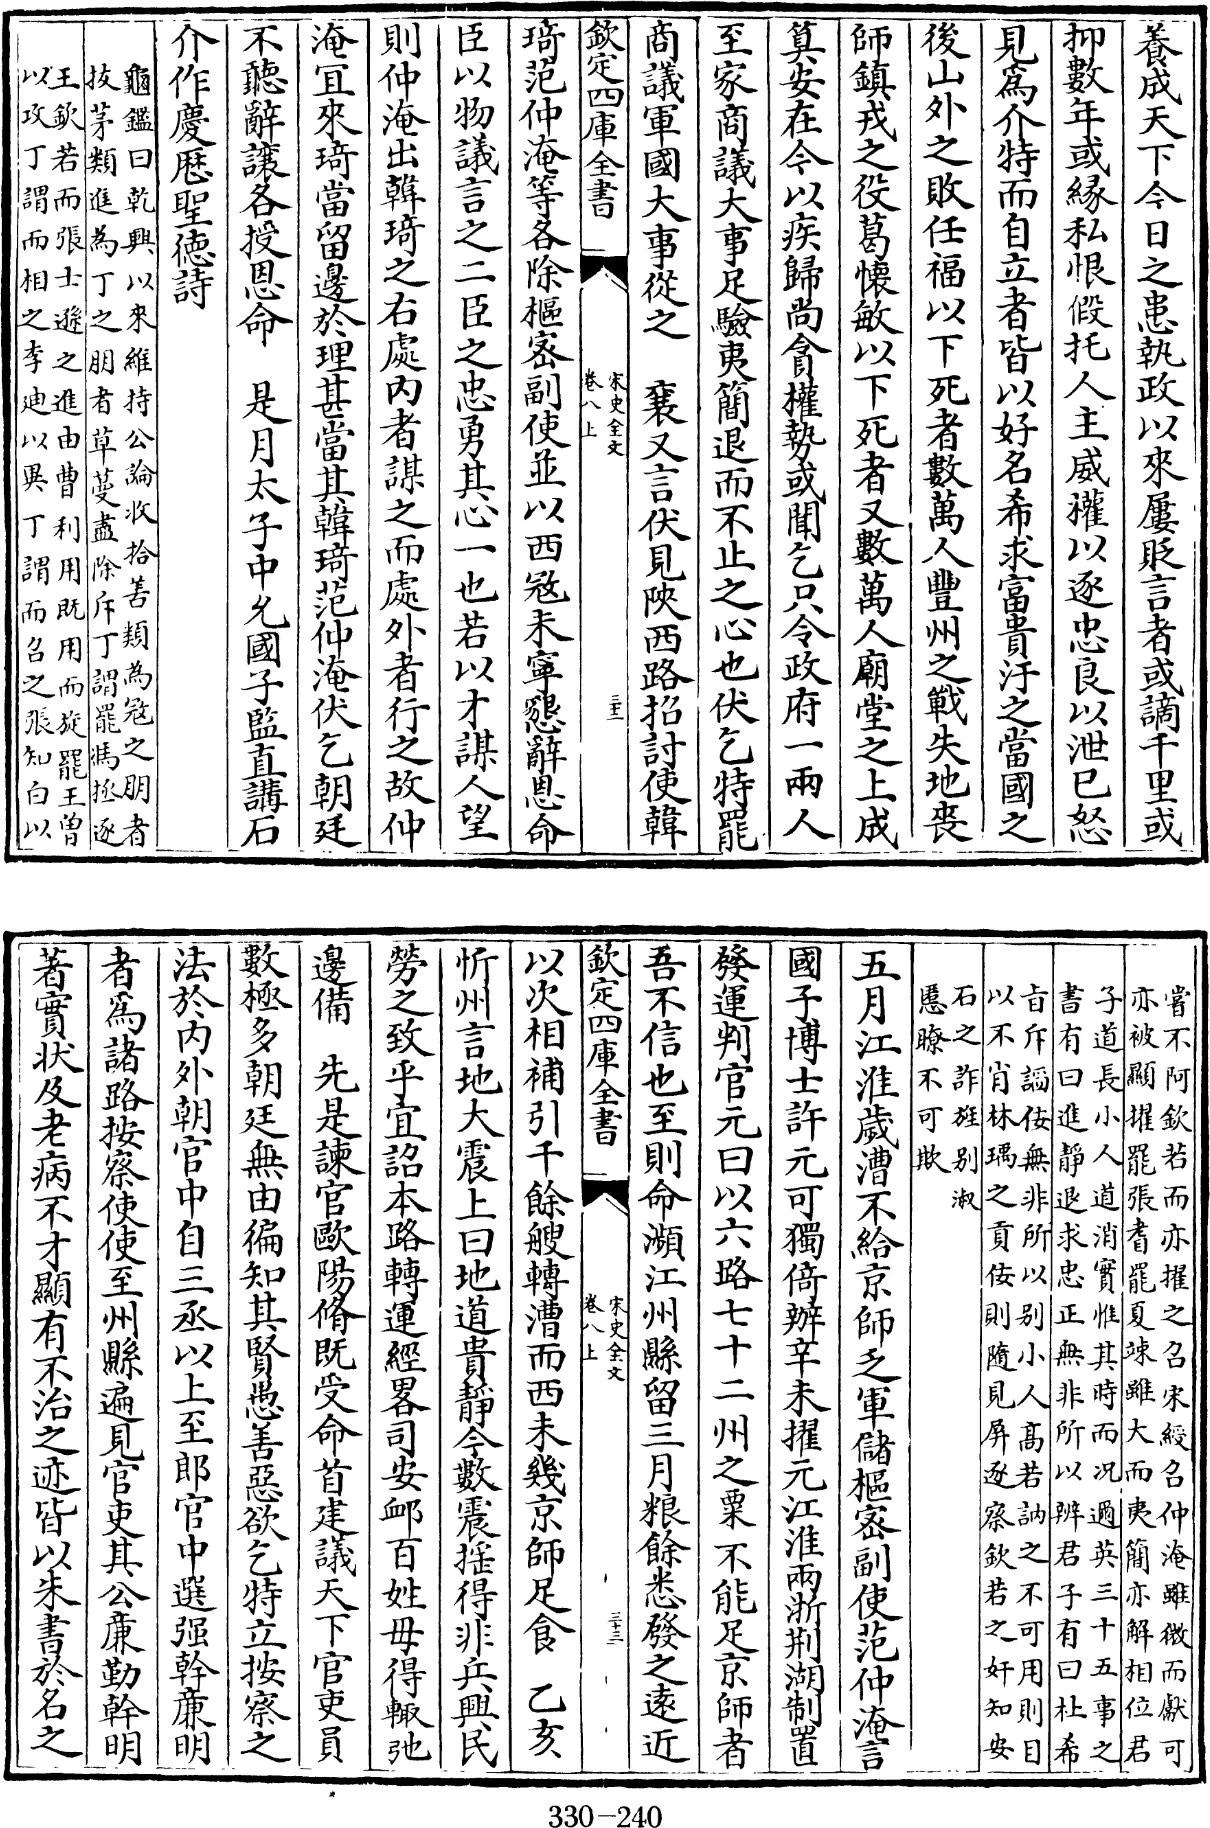 養成天下今日之患執政以來屢貶言者或謫千里或
抑數年或緣私恨假托人主威權以逐忠良以泄已怒
見爲介特而自立者皆以好名希求富貴汙之當國之
後山外之敗任福以下死者數萬人豐州之戰失地喪
師鎮戎之役葛懷敏以下死者又數萬人廟堂之上成
算安在今以疾歸尚貪權勢或聞乞只令政府一兩人
至家商議大事足驗夷簡退而不止之心也伏乞特罷
商議軍國大事從之　襄又言伏見陜西路招討使韓
欽定四庫全書
宋史全文
卷八上
三十二
琦范仲淹等各除樞密副使並以西冦未寧懇辭恩命
臣以物議言之二臣之忠勇其心一也若以才謀人望
則仲淹出韓琦之右處内者謀之而處外者行之故仲
淹宜來琦當留邊於理甚當其韓琦范仲淹伏乞朝廷
不聽辭讓各授恩命　是月太子中允國子監直講石
介作慶厯聖德詩
龜鑑曰乾興以來維持公論收拾善類為冦之朋者
拔茅類進為丁之朋者草蔓盡除斥丁謂罷馮拯逐
王欽若而張士遜之進由曹利用既用而旋罷王曾
以攻丁謂而相之李迪以異丁謂而召之張知白以
嘗不阿欽若而亦擢之召宋綬召仲淹雖微而獻可
亦被顯擢罷張耆罷夏竦雖大而夷簡亦解相位君
子道長小人道消實惟其時而况過英三十五事之
書有曰進靜退求忠正無非所以辨君子有曰杜希
㫖斥謟佞無非所以别小人髙若訥之不可用則目
以不肖林瑀之貢佞則隨見屏逐察欽若之奸知安
石之詐旌别淑
慝瞭不可欺
五月江淮歲漕不給京師乏軍儲樞密副使范仲淹言
國子博士許元可獨倚辦辛未擢元江淮兩浙荆湖制置
發運判官元曰以六路七十二州之粟不能足京師者
吾不信也至則命瀕江州縣留三月糧餘悉發之逺近
欽定四庫全書
宋史全文
卷八上
三十三
以次相補引千餘艘轉漕而西未幾京師足食　乙亥
忻州言地大震上曰地道貴靜今數震揺得非兵興民
勞之致乎宜詔本路轉運經畧司安衈百姓毋得輙弛
邊備　先是諫官歐陽脩既受命首建議天下官吏員
數極多朝廷無由徧知其賢愚善惡欲乞特立按察之
法於内外朝官中自三丞以上至郎官中選强幹廉明
者爲諸路按察使使至州縣遍見官吏其公廉勤幹明
著實狀及老病不才顯有不治之迹皆以朱書於名之
330-240